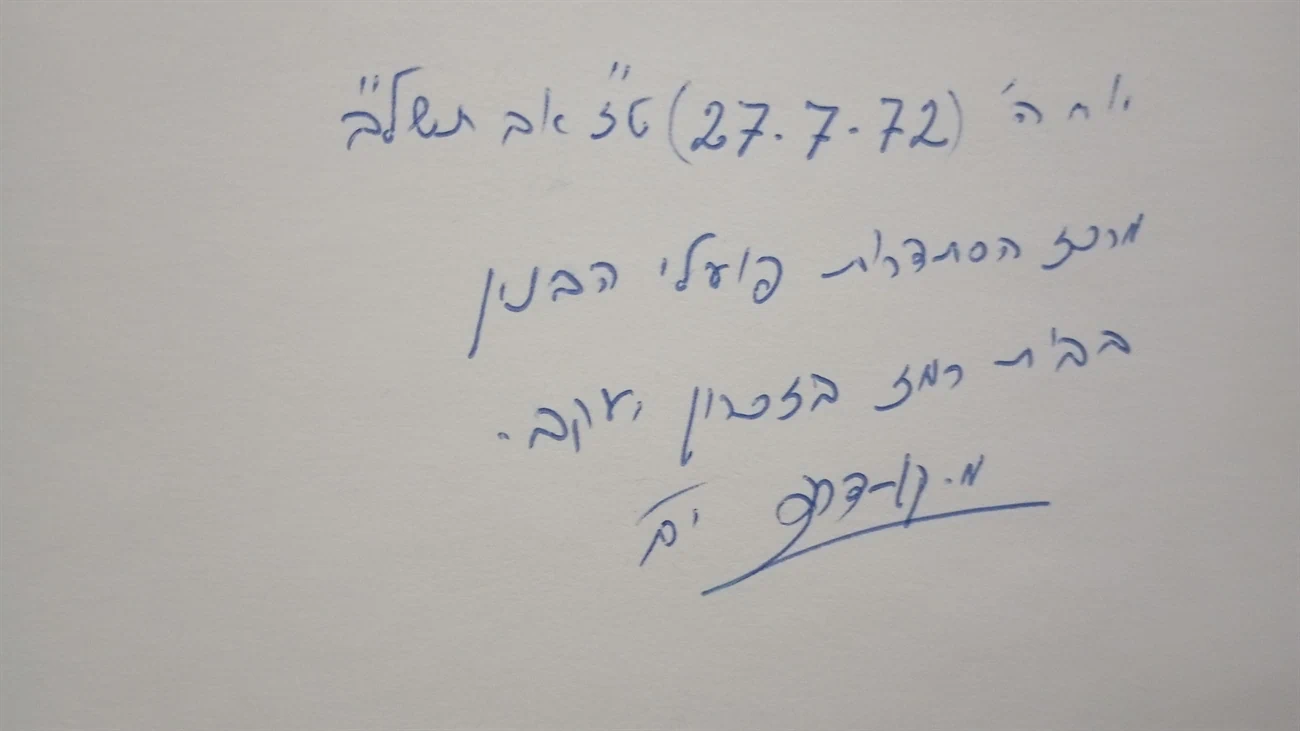 יום ה' (27.7.72) ט"ז אב תשל"ב
מרכז הסתדרות פועלי הבנין
בבית רמז בזכרון יעקב.
מ.